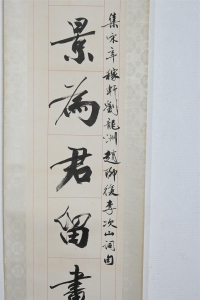 集宋辛稼軒劉龍洲趙聊復李次山詞句
景為君留